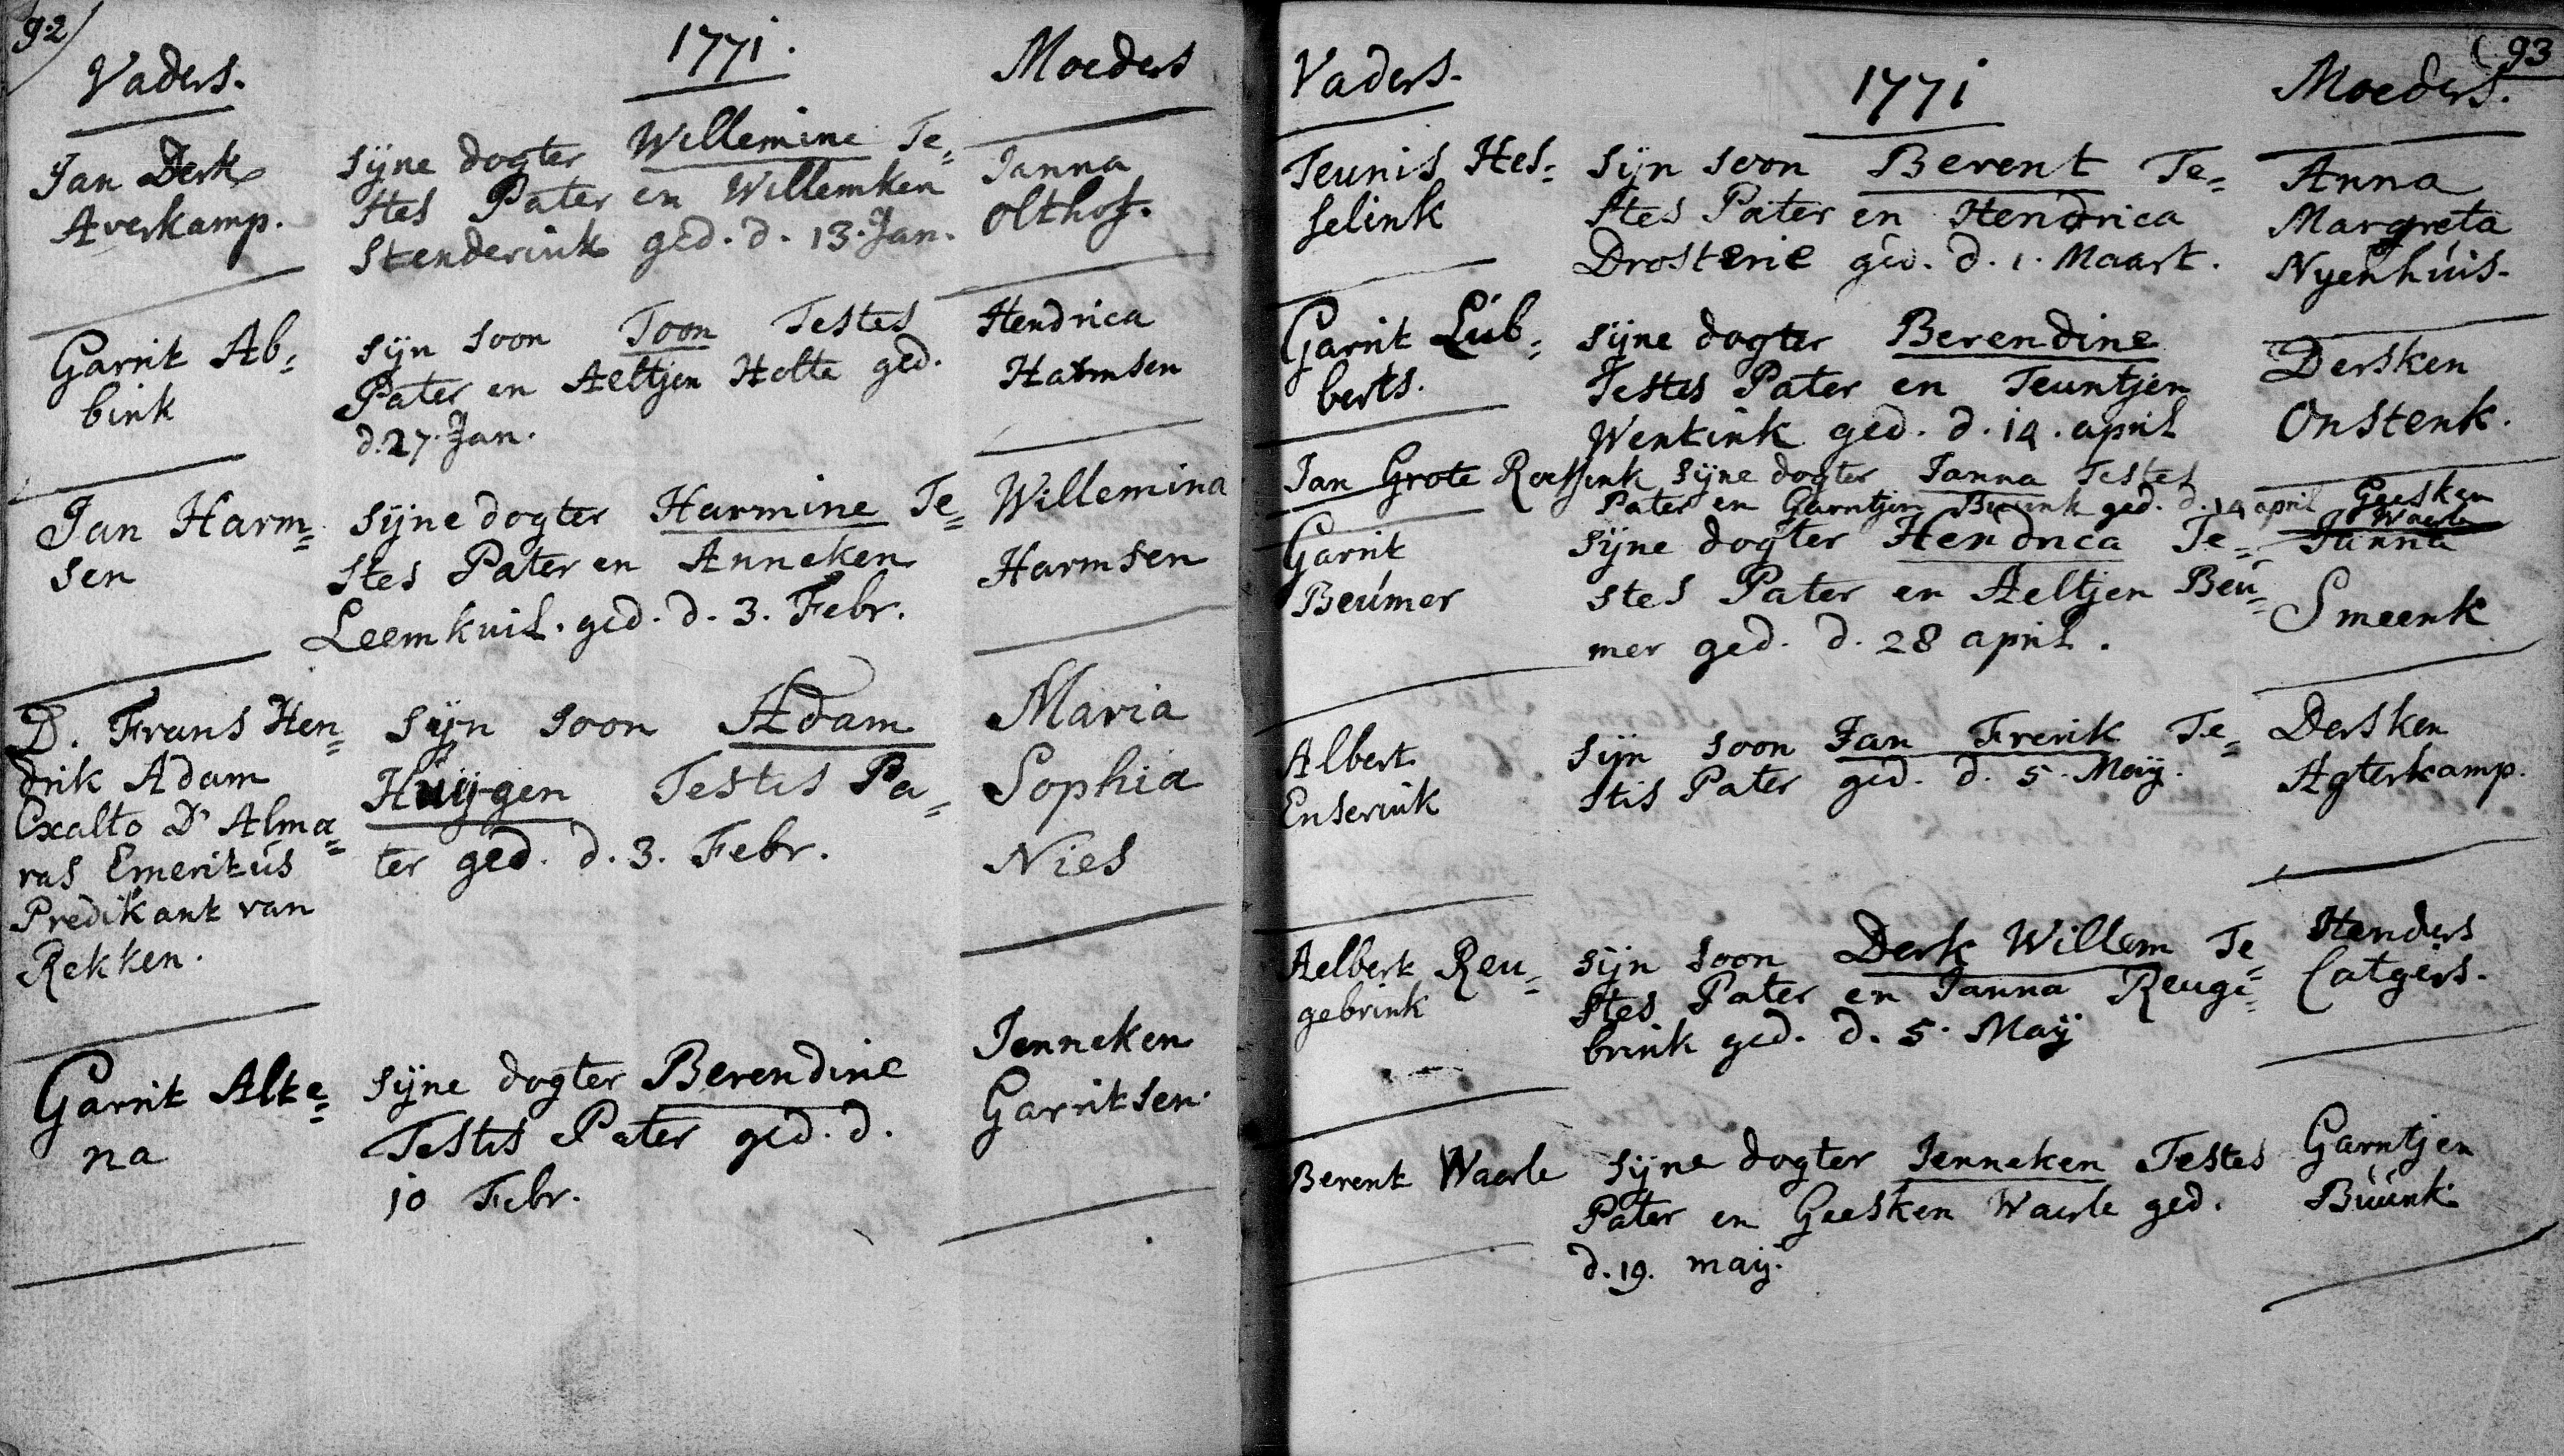 92
Vaders.
1771.
Moeders
Jan Derk
Averkamp.
Sijne dogter Willemine Te=
stes Pater en Willemken
Stenderink ged. d. 13. Jan.
Janna
Olthof.
Garrit Ab=
bink
Sijn soon Toon Testes
Pater en Aeltjen Holte ged.
d. 27. Jan.
Hendrica
Harmsen
Jan Harm=
sen
Sijne dogter Harmine Te=
stes Pater en Anneken
Leemkuil. ged. d. 3. Febr.
Willemina
Harmsen
D. Frans Hen=
drik Adam
Exalto Dr Alma=
ras Emeritús
Predikant van
Rekken.
Sijn soon Adam
Huijgen Testis Pa=
ter ged. d. 3. Febr.
Maria
Sophia
Nies
Garrit Alte=
na
Sijne dogter Berendine
Testis Pater ged. d.
10 Febr.
Jenneken
Garritsen.
93
Vaders.
1771
Moeders.
Teunis Hes=
selink
Sijn soon Berent Te=
stes Pater en Hendrica
Drosterie ged. d. 1. Maart.
Anna
Margreta
Nyenhúis.
Garrit Lúb=
berts.
Sijne dogter Berendine
Testes Pater en Teuntjen
Wentink ged. d. 14. april
Dersken
Onstenk.
Jan Grote Roessink Sijne dogter Janna Testes
Pater en Garntjen Buunk ged. d. 14 april
Geesken
Waerle
Garrit
Beúmer
Sijne dogter Hendrica Te=
stes Pater en Aeltjen Beú=
mer ged. d. 28 april.
Janna
Smeenk
Albert
Enserink
Sijn soon Jan Frerik Te=
stis Pater ged. d. 5. Maij.
Dersken
Agterkamp.
Aelbert Reu=
gebrink
Sijn soon Derk Willem Te=
stes Pater en Janna Reuge=
brink ged. d. 5. Maij
Henders
Catgers.
Berent Waerle
Sijne dogter Jenneken Testes
Pater en Geesken Waerle ged.
d. 19. maij.
Garntjen
Búúnk.